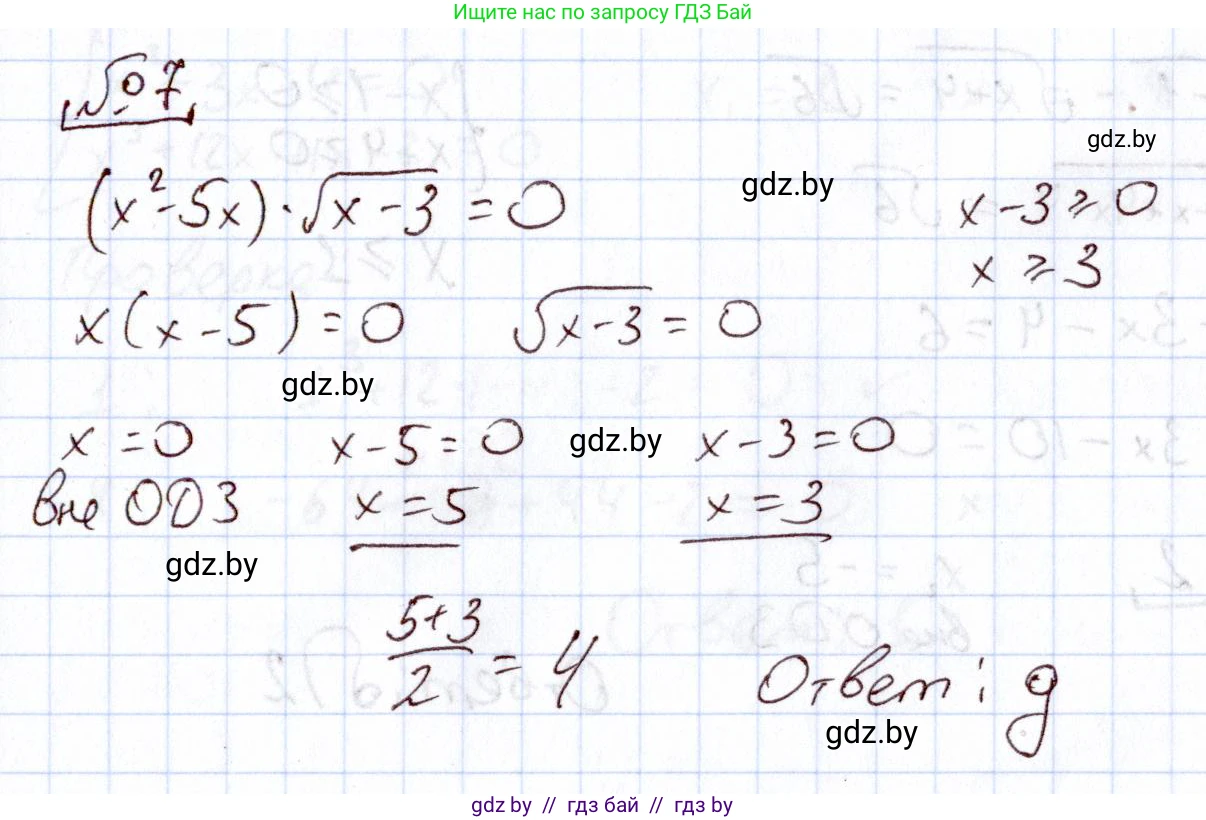 Ищите нас по запросу ГДЗ Бай
№ 7
gdz.by
(x²-5x)·√(x-3) = 0
gdz.by
x-3 ⩾ 0
x ⩾ 3
x(x-5) = 0 √(x-3) = 0
gdz.by
x = 0 x-5 = 0 gdz.by x-3 = 0
вне ОДЗ x = 5 x = 3
gdz.by
(5+3)/2 = 4 Ответ: g
gdz.by
gdz by // гдз бай // гдз by